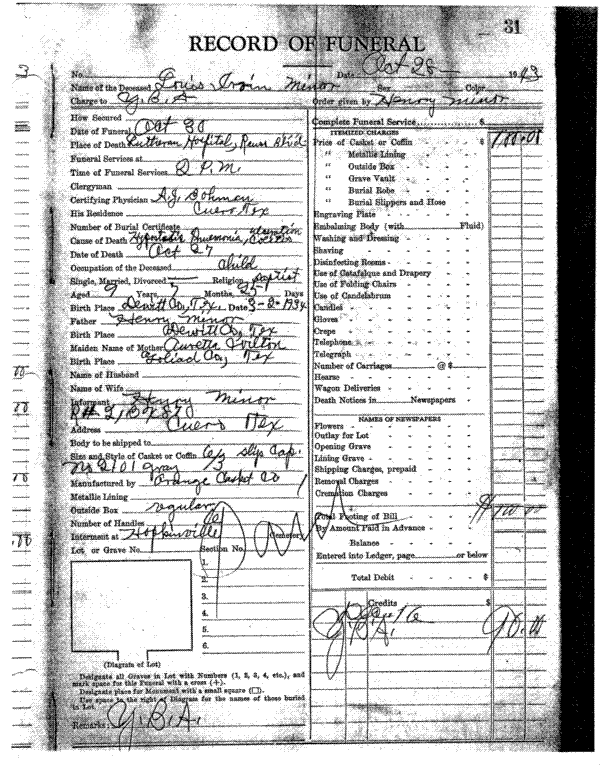 31
RECORD OF FUNERAL
No. Date Oct 28 1943
Name of the Deceased Louis Irvin Minor Sex Color
Charge to Y.B.A Order given by Henry Minor
How Secured
Date of Funeral Oct 30
Place of Death Lutheran Hospital,
Funeral Services at
Time of Funeral Services 2 P.M.
Clergyman
Certifying Physician A.J. Dohman
His Residence Cuero Tex
Number of Burial Certificate
Cause of Death Hypostatic Pneumonia,
Date of Death Oct 27
Occupation of the Deceased child
Single, Married, Divorced Religion Baptist
Aged 9 Years 7 Months, 25 Days
Birth Place Dewitt Co, Tex. Date 3-2-1934
Father Henry Minor
Birth Place Dewitt Co, Tex
Maiden Name of Mother Auretta
Birth Place Goliad Co, Tex
Name of Husband
Name of Wife
Informant Henry Minor
R#2, Box 870
Address Cuero Tex
Body to be shipped to
Size and Style of Casket or Coffin 6/3 slip Cap.
No 2101 gray
Manufactured by Orange Casket Co
Metallic Lining
Outside Box regular
Number of Handles 6
Interment at Hopkinsville Cemetery
Lot or Grave No. Section No.
1.
2.
3.
4.
5.
6.
(Diagram of Lot)
Designate all Graves in Lot with Numbers (1, 2, 3, 4, etc.), and
mark space for this Funeral with a cross (+).
Designate place for Monument with a small square (□).
Use space to the right of Diagram for the names of those buried
in Lot.
Remarks: Y.B.A.
Complete Funeral Service $
ITEMIZED CHARGES
Price of Casket or Coffin - $ 100.00
" Metallic Lining
" Outside Box
" Grave Vault
" Burial Robe
" Burial Slippers and Hose
Engraving Plate
Embalming Body (with Fluid)
Washing and Dressing
Shaving
Disinfecting Rooms
Use of Catafalque and Drapery
Use of Folding Chairs
Use of Candelabrum
Candles
Gloves
Crepe
Telephone
Telegraph
Number of Carriages @ $
Hearse
Wagon Deliveries
Death Notices in Newspapers
NAMES OF NEWSPAPERS
Flowers
Outlay for Lot
Opening Grave
Lining Grave
Shipping Charges, prepaid
Removal Charges
Cremation Charges
Total Footing of Bill $ 100.00
By Amount Paid in Advance
Balance
Entered into Ledger, page or below
Total Debit $
Credits $
Y.B.A. 90.00